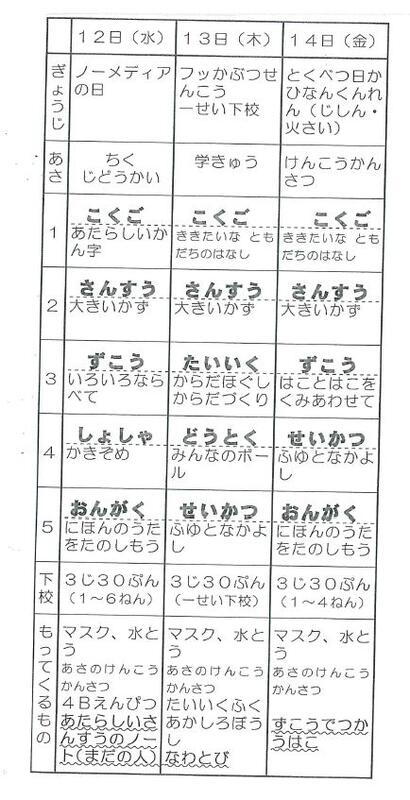 12日（水）
13日（木）
14日（金）
ぎょうじ
ノーメディア
の日
フッかぶつせ
んこう
一せい下校
とくべつ日か
ひなんくんれ
ん（じしん・
火さい）
あさ
ちく
じどうかい
学きゅう
けんこうかん
さつ
1
こくご
あたらしいか
ん字
こくご
ききたいな とも
だちのはなし
こくご
ききたいな とも
だちのはなし
2
さんすう
大きいかず
さんすう
大きいかず
さんすう
大きいかず
3
ずこう
いろいろなら
べて
たいいく
からだほぐし
からだづくり
ずこう
はことはこを
くみあわせて
4
しょしゃ
かきぞめ
どうとく
みんなのボー
ル
せいかつ
ふゆとなかよ
し
5
おんがく
にほんのうた
をたのしもう
せいかつ
ふゆとなかよ
し
おんがく
にほんのうた
をたのしもう
下校
3じ30ぷん
（1～6ねん）
3じ30ぷん
（一せい下校）
3じ30ぷん
（1～4ねん）
もってくるもの
マスク、水と
う
あさのけんこう
かんさつ
4Bえんぴつ
あたらしいさ
んすうのノー
ト（まだの人）
マスク、水と
う
あさのけんこう
かんさつ
たいいくふく
あかしろぼう
し
なわとび
マスク、水と
う
あさのけんこう
かんさつ
ずこうでつか
うはこ